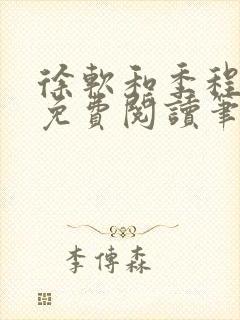 徐軟和季程
免費閱讀筆
李傳森